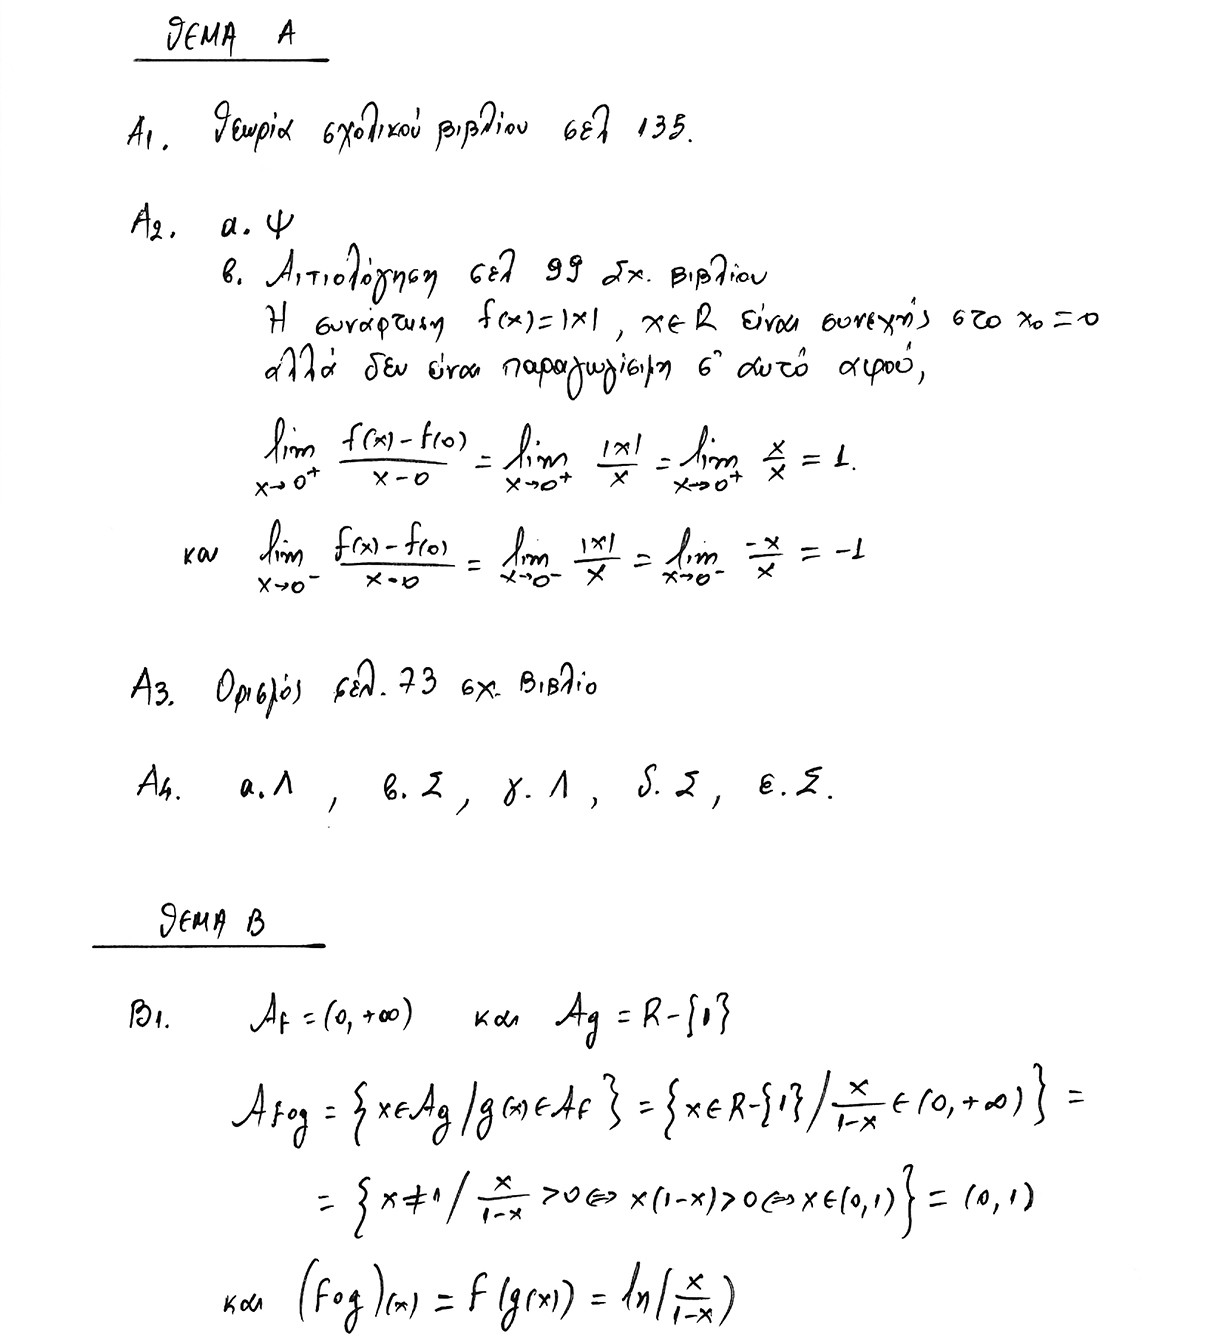 ΘΕΜΑ Α
Α1. Θεωρία σχολικού βιβλίου σελ 135.
Α2. α. Ψ
β. Αιτιολόγηση σελ 99 σχ. βιβλίου
Η συνάρτηση f(x)=|x|, x∈R είναι συνεχής στο x₀=0
αλλά δεν είναι παραγωγίσιμη σ' αυτό αφού,
lim_{x→0⁺} (f(x)-f(0))/(x-0) = lim_{x→0⁺} |x|/x = lim_{x→0⁺} x/x = 1.
και lim_{x→0⁻} (f(x)-f(0))/(x-0) = lim_{x→0⁻} |x|/x = lim_{x→0⁻} -x/x = -1
Α3. Ορισμός σελ. 73 σχ. βιβλίο
Α4. α. Λ , β. Σ , γ. Λ , δ. Σ , ε. Σ.
ΘΕΜΑ Β
Β1. A_f = (0, +∞) και A_g = R-{1}
A_{fog} = {x∈A_g / g(x)∈A_f} = {x∈R-{1} / x/(1-x) ∈ (0, +∞)} =
= {x≠1 / x/(1-x) >0 ⇔ x(1-x)>0 ⇔ x∈(0,1)} = (0,1)
και (fog)(x) = f(g(x)) = ln(x/(1-x))